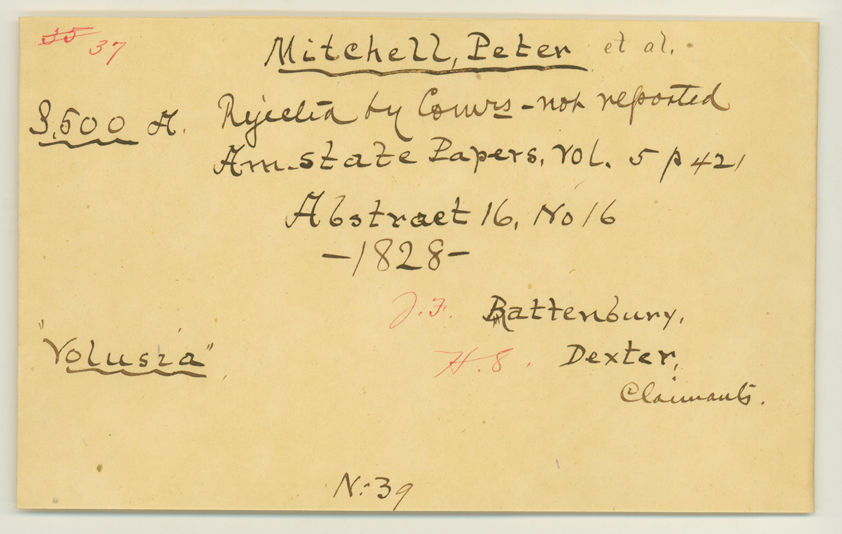 35 37
Mitchell, Peter et al.
3,500 A. Rejected by Comrs - not reported
Am. State Papers, Vol. 5 p 421
Abstract 16, No 16
-1828-
J.F. Rattenbury,
"Volusia"
H.S. Dexter,
Claimants.
N: 39